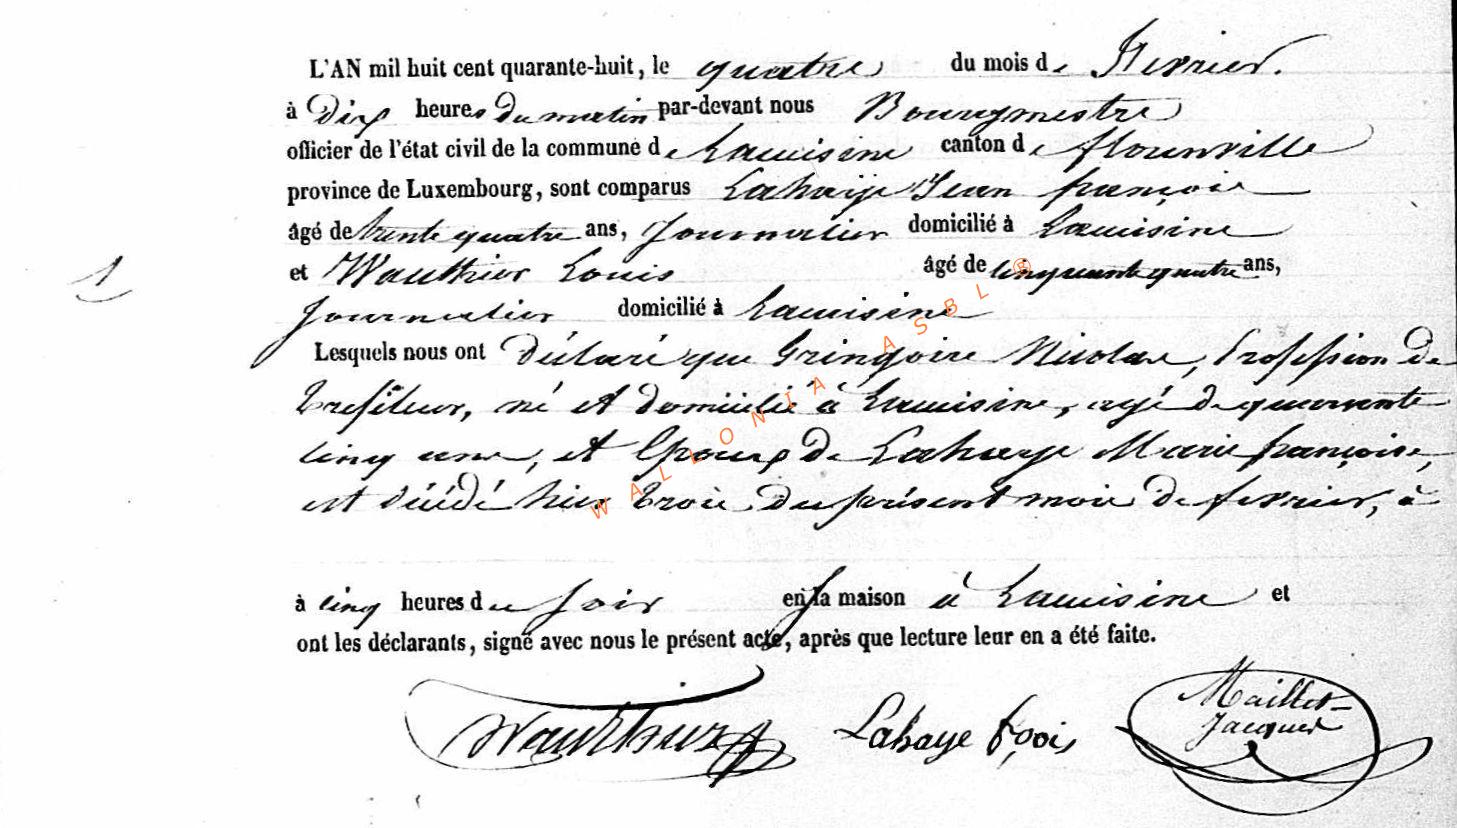 L'AN mil huit cent quarante-huit, le quatre du mois de Fevrier.
à Dix heures du matin par-devant nous Bourgmestre
officier de l'état civil de la commune de Lacuisine canton de florenville
province de Luxembourg, sont comparus Lahaye Jean françois
âgé de trente quatre ans, Journalier domicilié à Lacuisine
et Wauthier Louis âgé de cinquante quatre ans,
Journalier domicilié à Lacuisine
Lesquels nous ont déclaré que Gringoire Nicolas, Profession de
trefileur, né et domicilié à Lacuisine, agé de quarante
cinq ans, et Epoux de Lahaye Marie françoise,
est décédé hier trois du présent mois de fevrier, à
à cinq heures du soir en sa maison à Lacuisine et
ont les déclarants, signé avec nous le présent acte, après que lecture leur en a été faite.
Wauthier Lahaye fçois Maillet
Jacques
1
WALLONIA ASBL ®